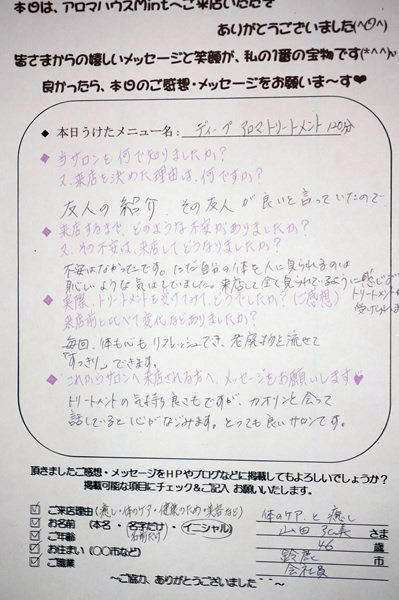 本日は、アロマハウスMintへご来店いただき
ありがとうございました(^O^)
皆さまからの嬉しいメッセージと笑顔が、私の1番の宝物です(*^^*)
良かったら、本日のご感想・メッセージをお願いま～す♥
◆ 本日うけたメニュー名： ディープ アロマトリートメント 120分
◆ 当サロンを何で知りましたか？
又、来店を決めた理由は、何ですか？
友人の紹介、その友人が良いと言っていたので
◆ 来店するまで、どのような不安がありましたか？
又、その不安は、来店してどうなりましたか？
不安はなかったです。ただ自分の体を人に見られるのは
恥しいような気はしていました。来店したら全く見られているように感じず
トリートメントが
受けられます
◆ 実際、トリートメントを受けてみて、どうでしたか？(ご感想)
来店前と比べて変化などありましたか？
毎回、体も心もリフレッシュでき、老廃物を流せて
「すっきり」できます。
◆ これからサロンへ来店される方へ、メッセージをお願いします♥
トリートメントの気持ち良さもですが、カオリンと会って
話していると心がなごみます。とっても良いサロンです。
頂きましたご感想・メッセージをHPやブログなどに掲載してもよろしいでしょうか？
掲載可能な項目にチェック&ご記入 お願いいたします。
☑ ご来店理由 (癒し・体のケア・健康のため・美容など) 体のケアと癒し
☑ お名前 (本名・名字だけ・イニシャル) 山田 さま
名前だけ
☑ ご年齢 46 歳
☑ お住まい (〇〇市など) 鈴鹿 市
☑ ご職業 会社員
～ご協力、ありがとうございました～